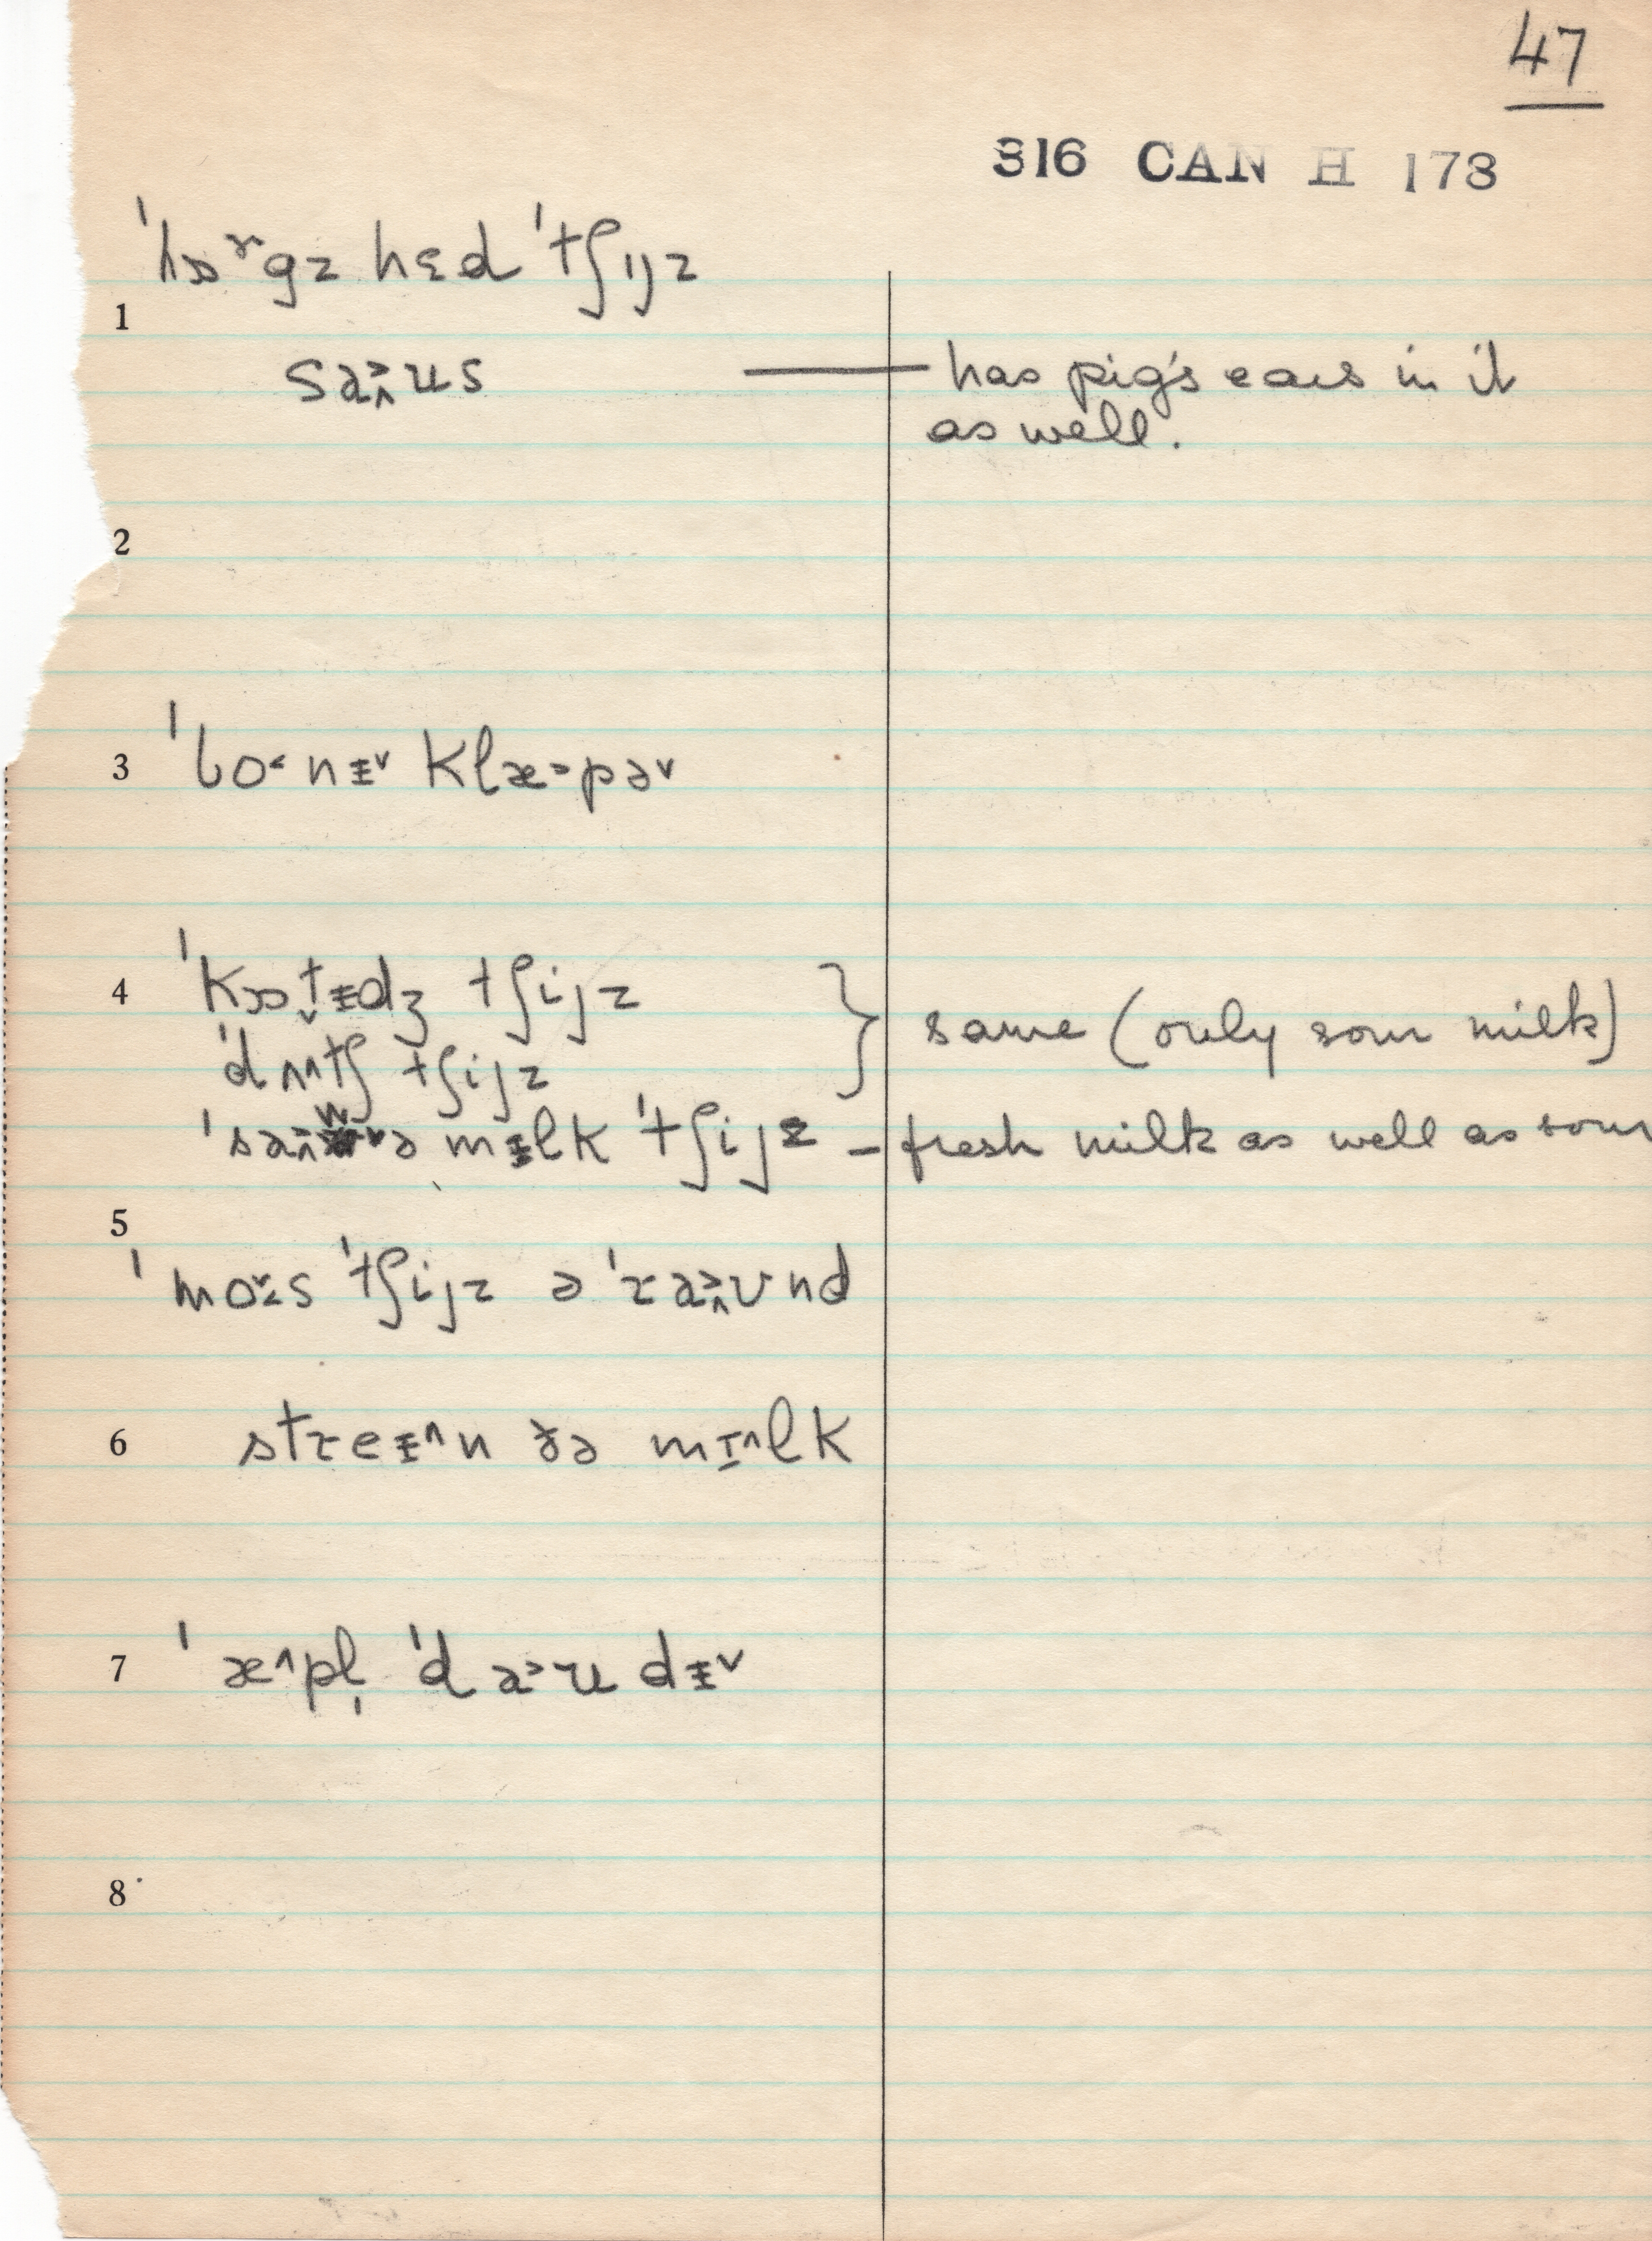 47
316 CAN H 173
ˈhɒʳgz hɛd ˈtʃɪjz
1
sa̭˃us — has pig's ears in it
as well.
2
3 ˈbo˂nᵻ˅ klæ˃pə˅
4 ˈkɒt̬ᵻdʒ tʃijz
ˈdʌ^tʃ tʃijz } same (only sour milk)
ˈsa̭˃wə mᵻlk ˈtʃijz – fresh milk as well as sour
5
ˈmo˅˂s ˈtʃijz əˈɾa̭˃ʊnd
6 stɾeᵻ^n ðə mɪ^lk
7 ˈæ^pl̩ ˈda˃u dᵻ˅
8